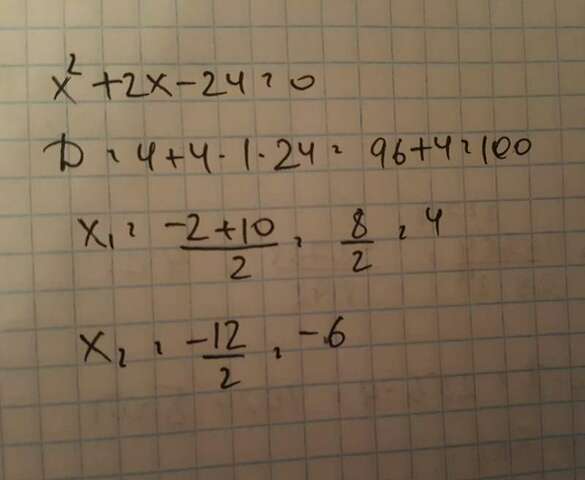 x² + 2x - 24 = 0
D = 4 + 4 · 1 · 24 = 96 + 4 = 100
x₁ = (-2 + 10)/2 = 8/2 = 4
x₂ = -12/2 = -6